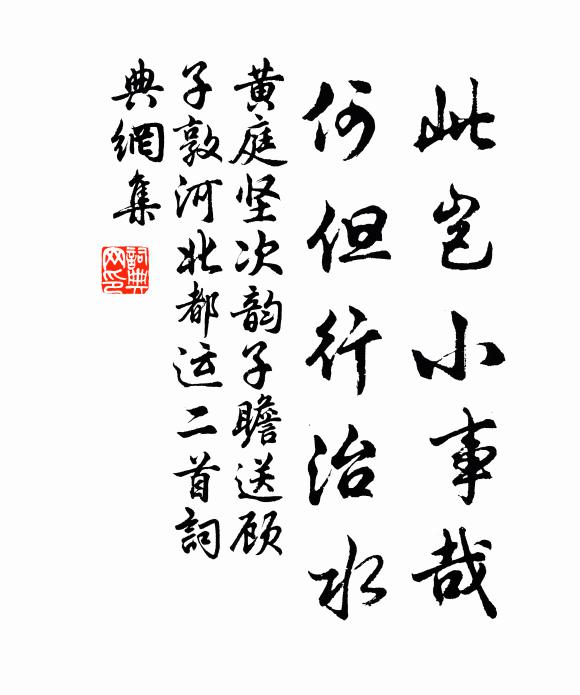 此岂小事哉
何但行治水
黄庭坚次韵子瞻送顾
子敦河北都运二首詞
典網集
詞典
网印